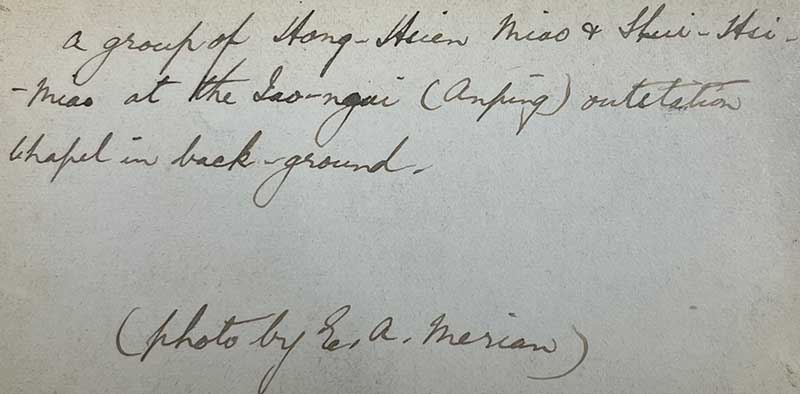 a group of Hong-Hsien Miao & Shui-Hsi-
-Miao at the Iao-ngai (Anping) outstation
Chapel in back-ground.
(photo by E. A. Merian)